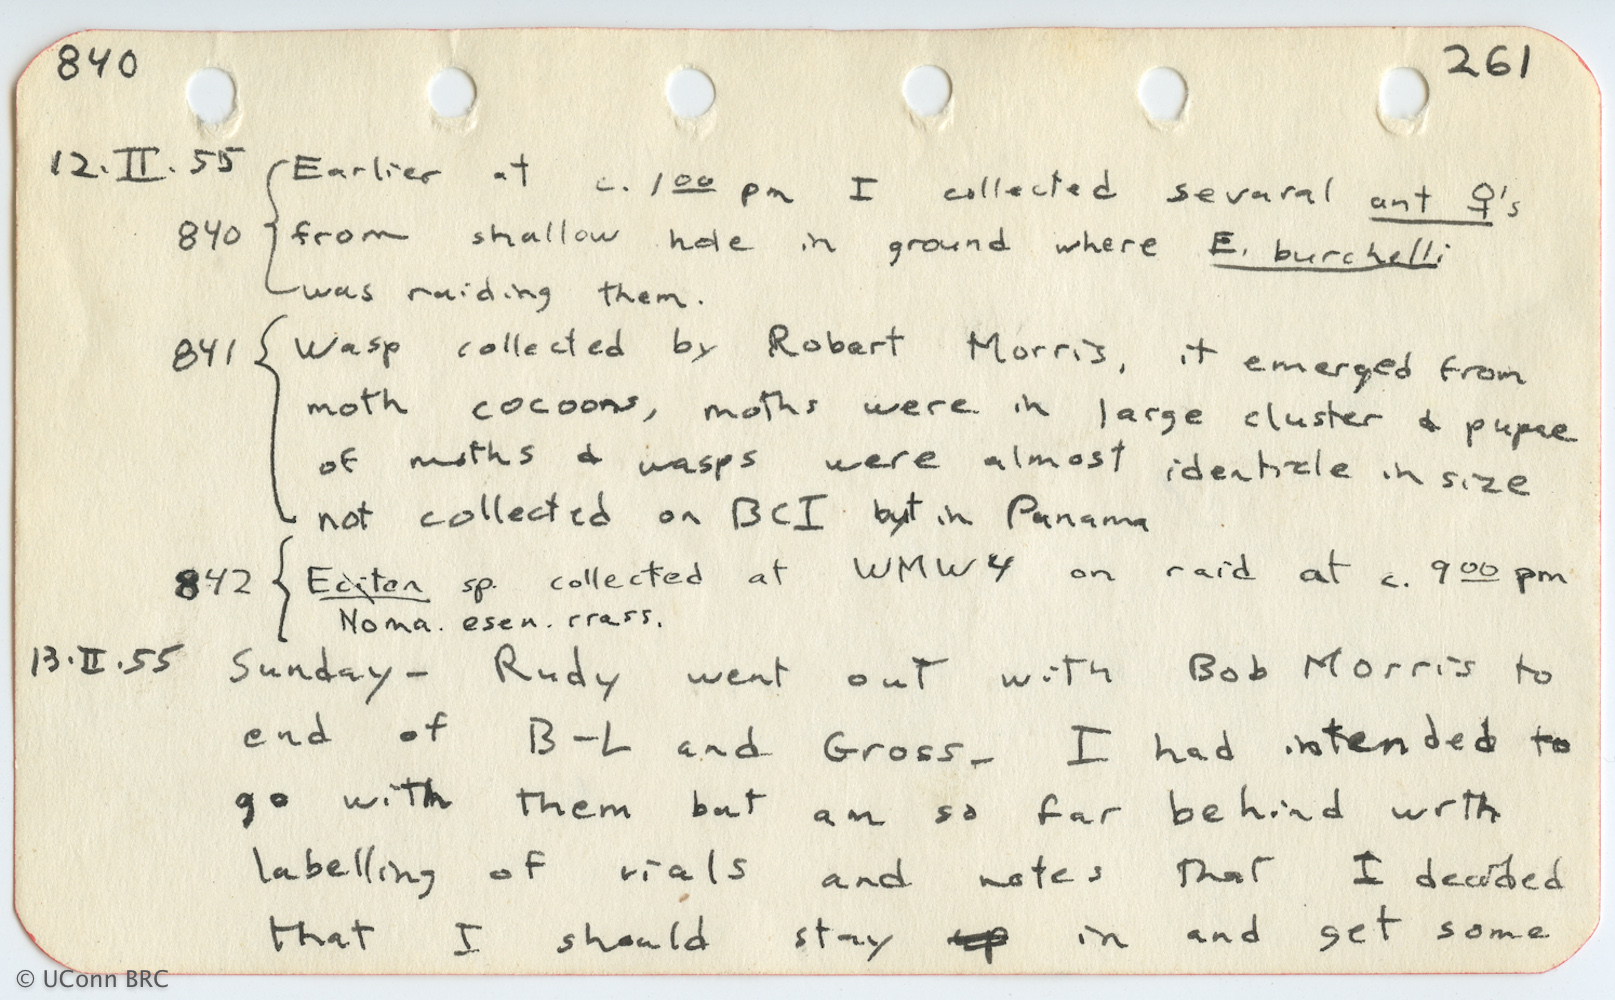 840 261
12.II.55 Earlier at c. 1 00 pm I collected sevaral ant ♀'s
840 from shallow hole in ground where E. burchelli
was raiding them.
841 Wasp collected by Robert Morris, it emerged from
moth cocoons, moths were in large cluster & pupae
of moths & wasps were almost identicle in size
not collected on BCI but in Panama
842 Eciton sp. collected at WMW 4 on raid at c. 9 00 pm
Noma. esen. crass.
13.II.55 Sunday- Rudy went out with Bob Morris to
end of B-L and Gross- I had intended to
go with them but am so far behind with
labelling of vials and notes that I decided
that I should stay in and get some
© UConn BRC